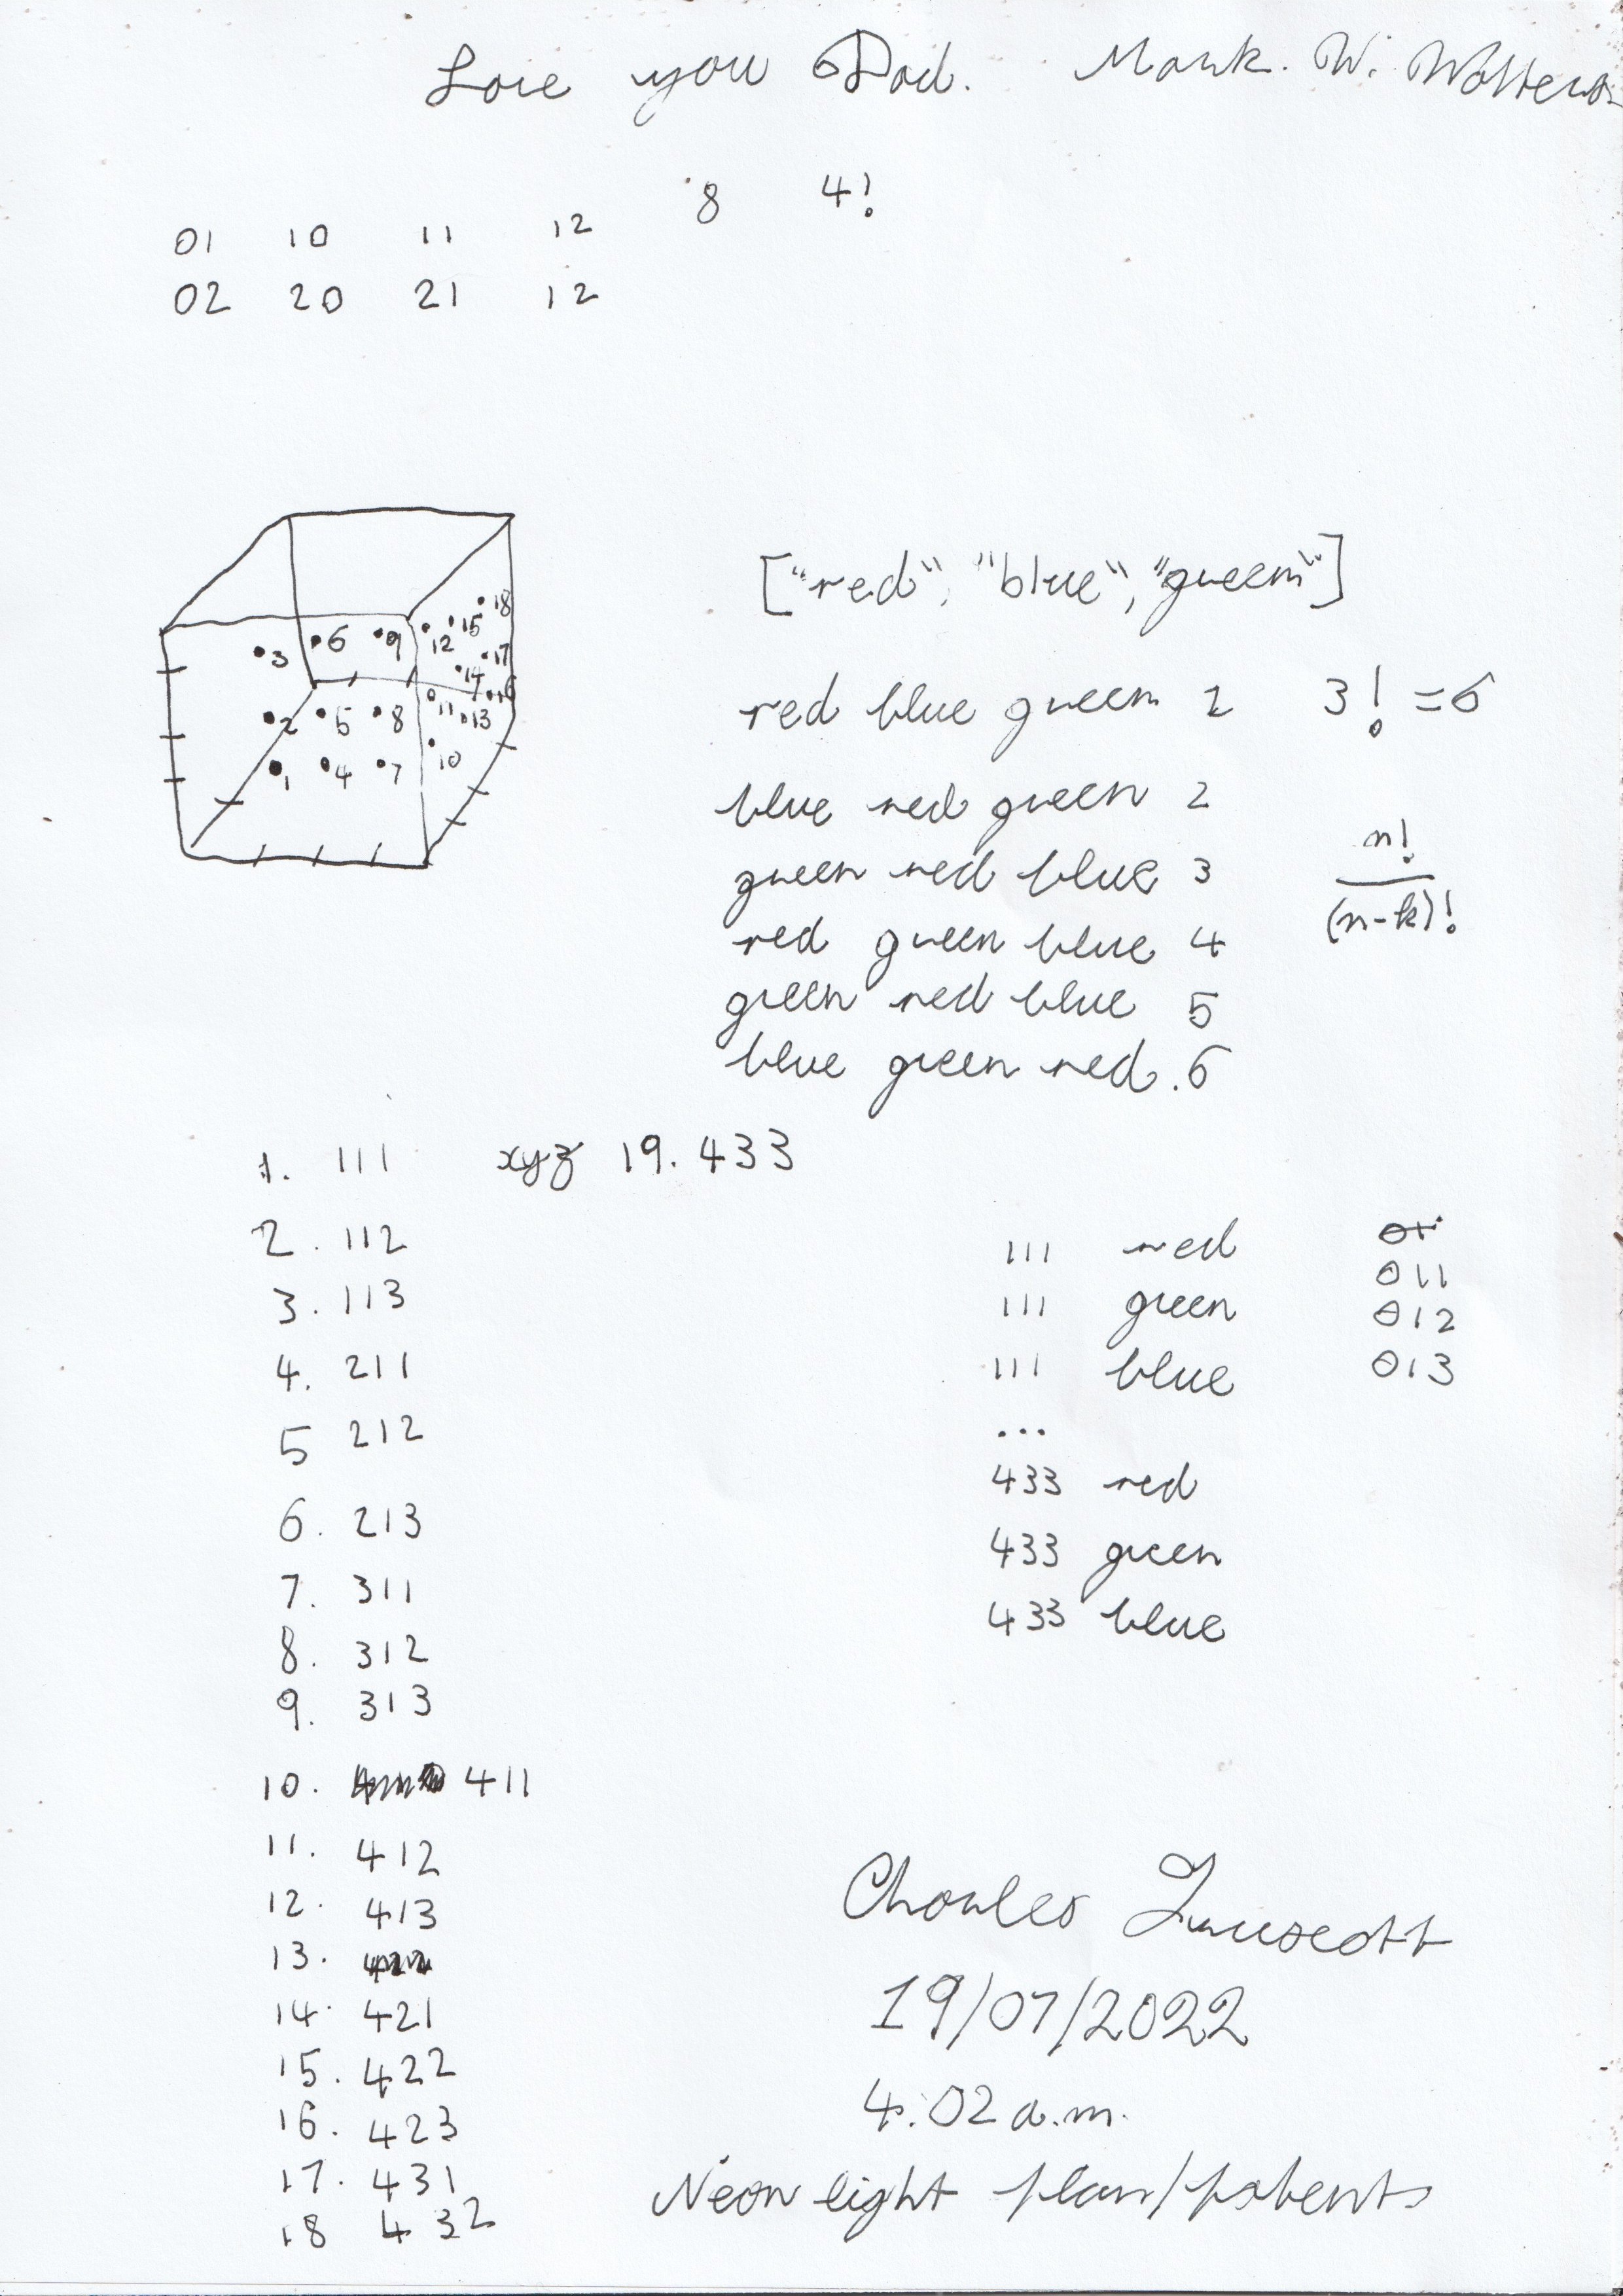 Love you Dad. Mark. W.
8 4!
01 10 11 12
02 20 21 12
["red", "blue", "green"]
3 6 9 12 15 18
2 5 8 11 14 17
1 4 7 10 13 16
red blue green 2 3! = 6
blue red green 2
green red blue 3
n!
(n-k)!
red green blue 4
green red blue 5
blue green red. 6
1. 111 xyz 19. 433
2. 112
3. 113
4. 211
5 212
6. 213
7. 311
8. 312
9. 313
10. 411
11. 412
12. 413
13.
14. 421
15. 422
16. 423
17. 431
18 432
111 red
011
111 green 012
111 blue 013
...
433 red
433 green
433 blue
Charles
19/07/2022
4:02 a.m.
Neon light plan/patents